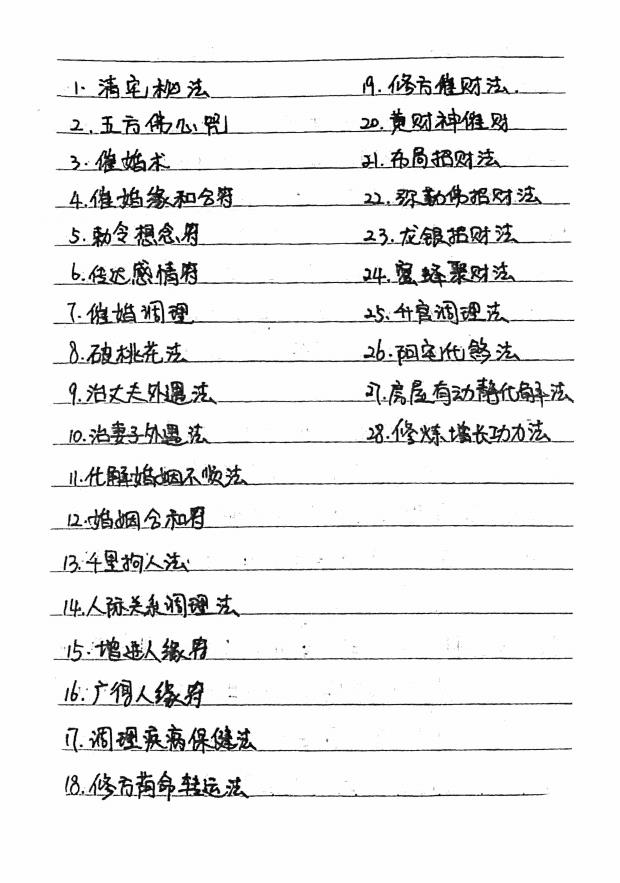 1. 清宅秘法
2. 五方佛心咒
3. 催婚术
4. 催婚缘和合符
5. 勅令想念符
6. 传达感情符
7. 催婚调理
8. 破桃花法
9. 治丈夫外遇法
10. 治妻子外遇法
11. 化解婚姻不顺法
12. 婚姻合和符
13. 千里拘人法
14. 人际关系调理法
15. 增进人缘符
16. 广得人缘符
17. 调理疾病保健法
18. 修方命转运法
19. 修方催财法.
20. 黄财神催财
21. 布局招财法
22. 弥勒佛招财法
23. 龙银招财法
24. 蜜蜂聚财法
25. 升官调理法
26. 阳宅化煞法
27. 房屋有动静化解法
28. 修炼增长功力法